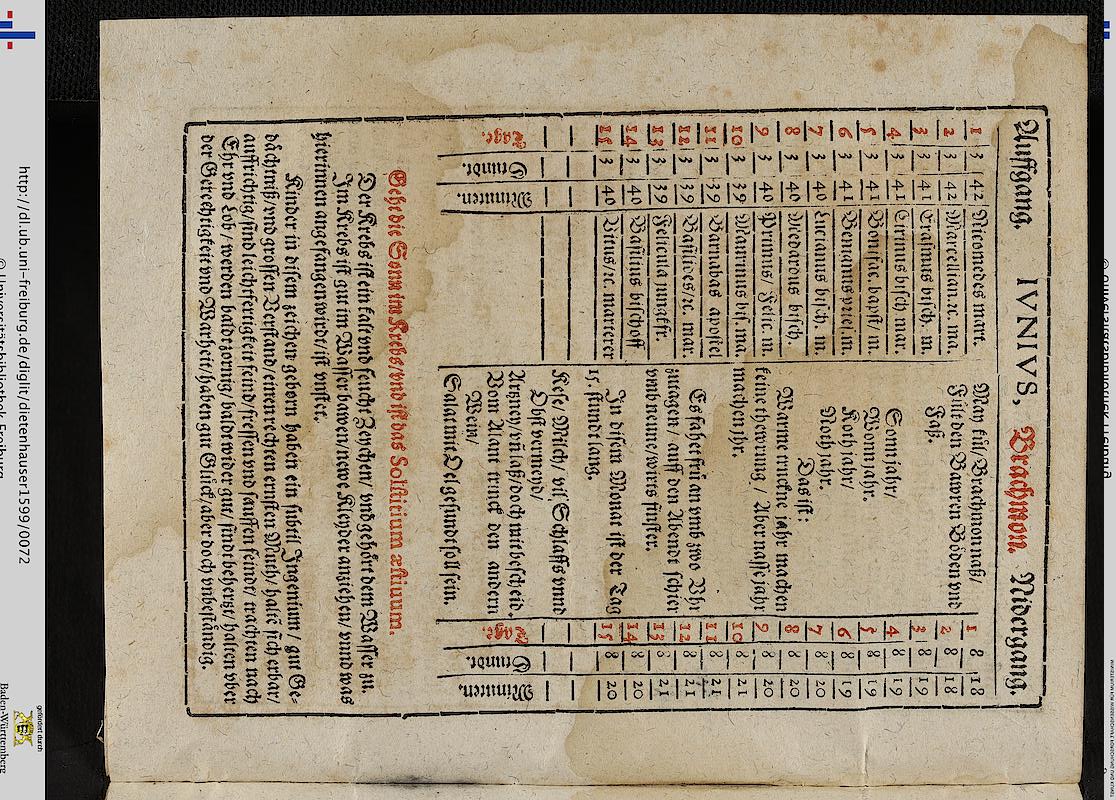 Auffgang. IVNIVS, Brachmon. Nidergang.
1 3 42 Nicomedes mart. May kül/Brachmon naß/ 1 8 18
2 3 42 Marcellian.rc. ma. Füllt den Bawren Böden vnd 2 8 18
3 3 41 Erasmus bisch. m. Faß. 3 8 19
4 3 41 Cirinus bisch. mar. Sonn jahr/ 4 8 19
5 3 41 Bonifac. bapst/ m. Wonn jahr. 5 8 19
6 3 41 Benignus priest. m. Koth jahr/ 6 8 19
7 3 40 Lucianus bisch. m. Noth jahr. 7 8 20
8 3 40 Medardus bisch. Das ist: 8 8 20
9 3 40 Primus/ Felic. m. Warme truckne jahr machen 9 8 20
10 3 39 Maurinus bis. ma. keine thewrung / Aber nasse jahr 10 8 21
11 3 39 Barnabas apostel machen ihr. 11 8 21
12 3 39 Basilides/rc. mar. Es fahet früe an vmb zwo Vhr 12 8 21
13 3 39 Felicula jungkfr. zutagen / auff den Abendt schier 13 8 21
14 3 40 Basilius bischoff. vmb neune/wirts finster. 14 8 20
15 3 40 Vitus/rc. marterer In disem Monat ist der Tag 15 8 20
15. stund lang.
Keß/ Milch/ vil Schlaffs vnnd
Obst vermeyd/
Artzney/ vñ laß/doch mit bescheid.
Vom Alant trinck den andern
Wein/
Salat mit Oel gesundt soll sein.
Tage. Stundt. Minuten. Tage. Stundt. Minuten.
Gehe die Sonn im Krebs/vnd ist das Solstitium æstiuum.
Der Krebs ist ein kalt vnd feucht Zeychen/ vnd gehört dem Wasser zu.
Im Krebs ist gut im Wasser bawen/newe Kleyder anziehen/ vnnd was
hierinnen angefangen wirdt/ ist vnstet.
Kinder in disem zeichen geborn haben ein subtil Ingenium / gut Ge-
dächtniß/vnd grossen Verstand/ einen rechten ernsten Muth/ haltē sich erbar/
auffrichtig/sind leichtfertigkeit feind/fressen vnd sauffen feindt/ trachten nach
Ehr vnd Lob / werden bald zornig/ bald wider gut/ sindt behertzt/ halten vber
der Gerechtigkeit vnd Warheit/haben gut Glück/ aber doch vnbeständig.
http://dl.ub.uni-freiburg.de/diglit/dietenhauser1599/0072
© Universitätsbibliothek Freiburg
gefördert durch
Baden-Württemberg